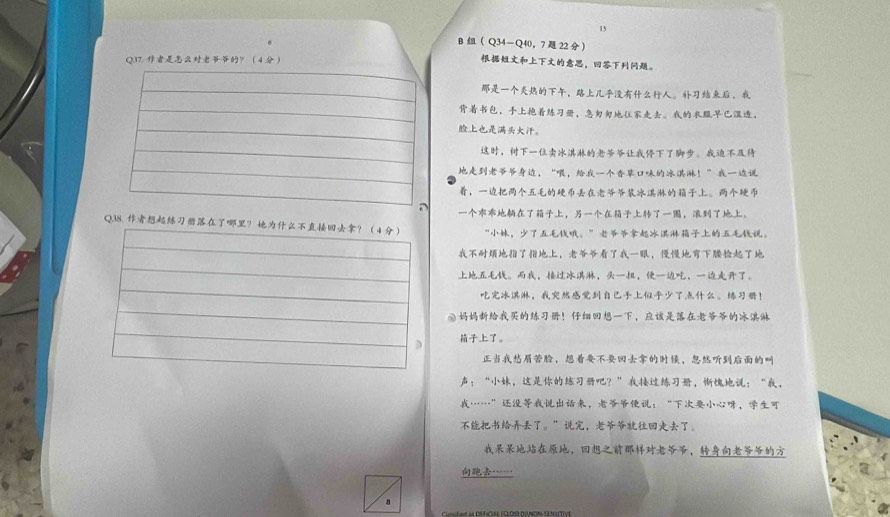 6
Q37. 作者是怎么对老爷爷的？（4分）
Q38. 作者想起练习册落在了哪里？她为什么不直接回去拿？（4分）
8
15
B组（Q34—Q40，7题22分）
根据短文和上下文的意思，回答下列问题。
那是一个炎热的下午，路上几乎没有什么行人。补习结束后，我
背着书包，手上抱着练习册，急匆匆地往家走去。我的衣服早已湿透，
脸上也是满头大汗。
这时，树下一位卖冰淇淋的老爷爷让我停下了脚步。我迫不及待
地走到老爷爷身边，“喂，给我一个香草口味的冰淇淋！”我一边说
着，一边把两个五毛的硬币丢在老爷爷装冰淇淋的箱子上。两个硬币
一个乖乖地躺在了箱子上，另一个在箱子上转了一圈，滚到了地上。
“小妹，少了五毛钱哦。”老爷爷拿起冰淇淋箱子上的五毛钱说。
我不耐烦地指了指地上，老爷爷看了我一眼，慢慢地弯下腰捡起了地
上地五毛钱。而我，接过冰淇淋，头一扭，便一边吃，一边走开了。
吃完冰淇淋，我突然感觉到自己手上似乎少了点什么。练习册！
妈妈新给我买的练习册！仔细回想一下，应该是落在老爷爷的冰淇淋
箱子上了。
正当我愁眉苦脸，想着要不要回去拿的时候，忽然听到后面的叫
声：“小妹，这是你的练习册吧？”我接过练习册，惭愧地说：“我，
我……”还没等我说出话来，老爷爷便说：“下次要小心呀，学生可
不能把书给弄丢了。”说完，老爷爷就往回走去了。
我呆呆地站在原地，回想之前那样对老爷爷，转身向老爷爷的方
向跑去……
Classified as OFFICIAL (CLOSED)/NON-SENSITIVE